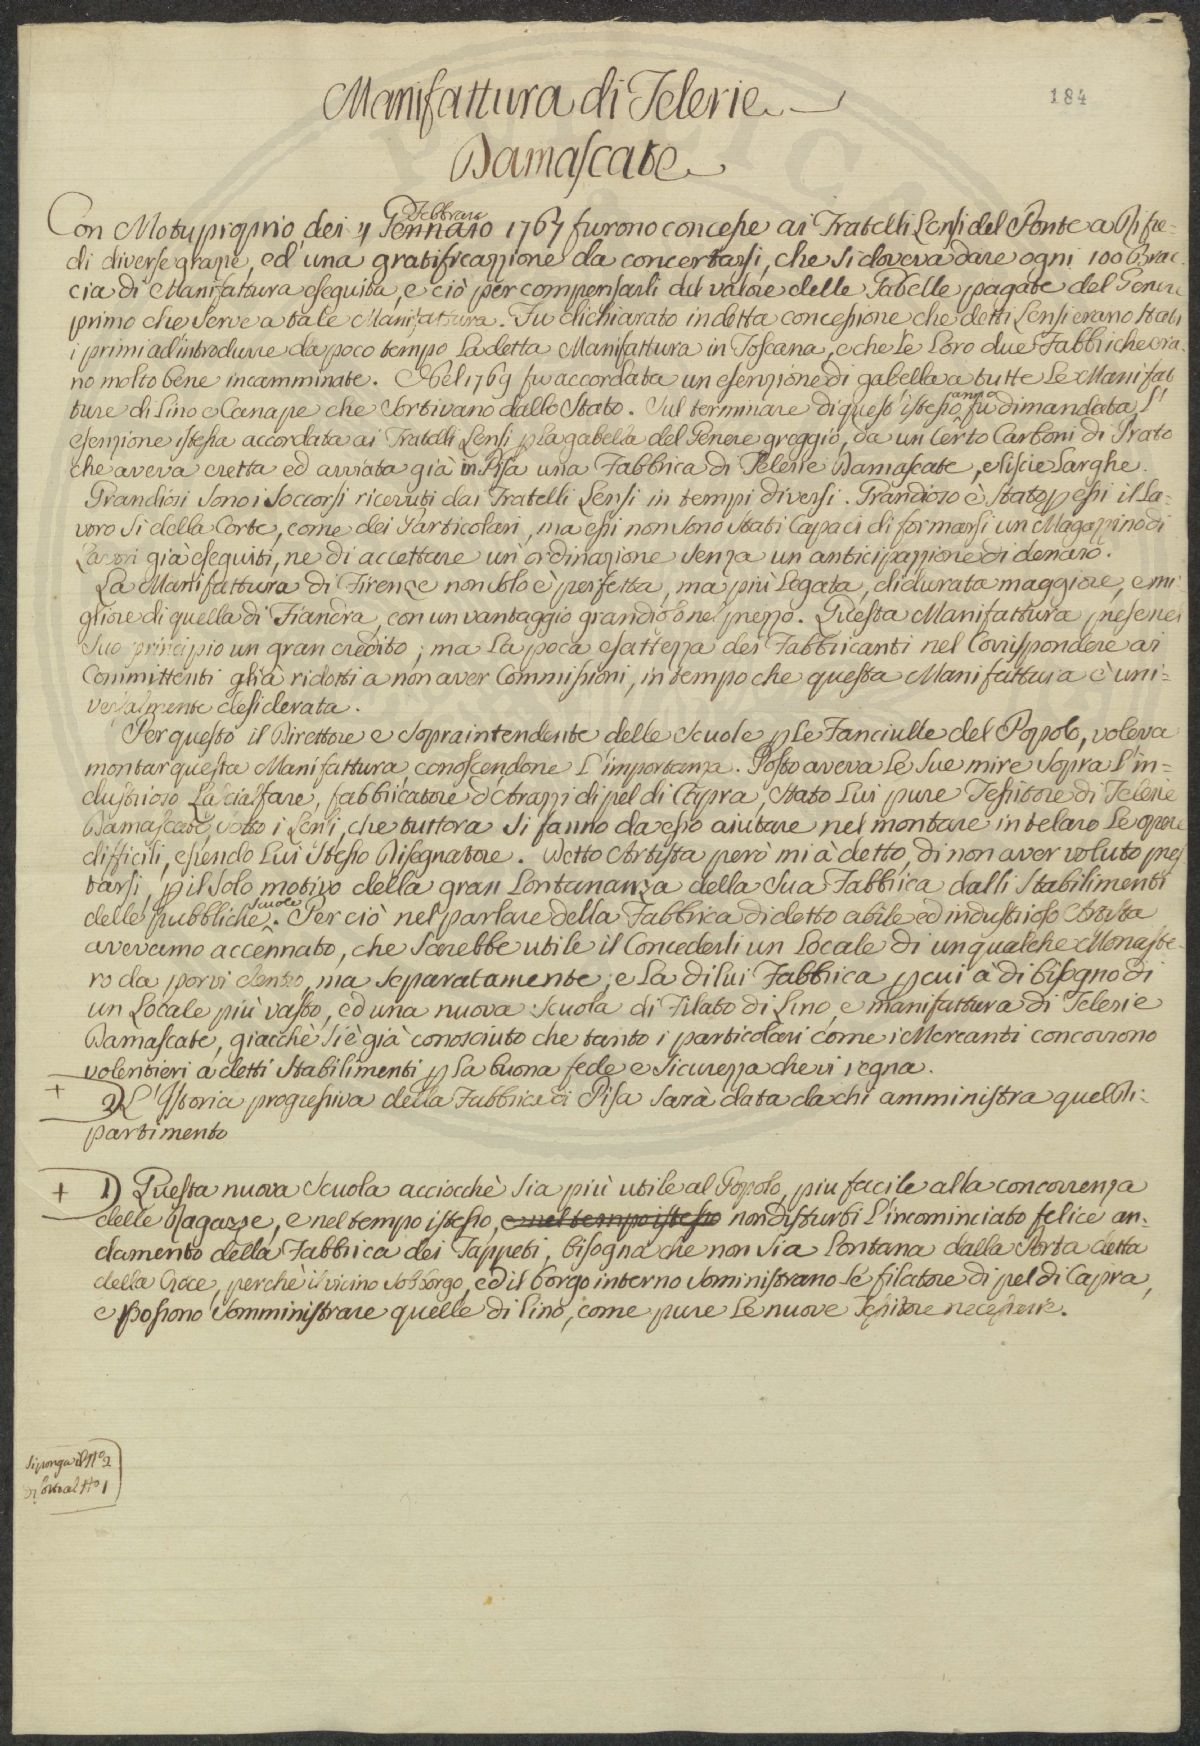 184
Manifattura di Telerie
Damascate
Con Motuproprio dei 4 Gennaio Febbraio 1767 furono concesse ai Fratelli Lensi del Ponte a Rifre-
di diverse grazie, ed una gratificazzione da concertarsi, che si doveva dare ogni 100 Brac-
cia di Manifattura eseguita, e ciò per compensarli del valore delle Gabelle pagate del Genere
primo che serve a tale Manifattura. Fu dichiarato in detta concessione che detti Lensi erano stati
i primi ad introdurre da poco tempo la detta Manifattura in Toscana, e che le loro due Fabbriche era-
no molto bene incamminate. Nel 1769 fu accordata un esenzione di gabella a tutte le Manifat
ture di Lino e Canape che sortivano dallo Stato. Sul terminare di quest'istesso anno fù dimandata l'
esenzione istessa accordata ai Fratelli Lensi p la gabella del Genere greggio, da un Certo Carboni di Prato
che aveva eretta ed avviata già in Pisa una Fabbrica di Telerie Damascate, e liscie Larghe.
Grandiosi sono i soccorsi ricevuti dai Fratelli Lensi in tempi diversi. Grandioso è stato p essi il La-
voro sì della Corte, come dei Particolari, ma essi non sono stati Capaci di formarsi un Magazzino di
Lavori già eseguiti, ne di accettare un ordinazione senza un anticipazzione di denaro.
La Manifattura di Firenze non solo è perfetta, ma più Legata, di durata maggiore, e mi-
gliore di quella di Fiandra, con un vantaggio grandioso nel prezzo. Questa Manifattura prese nel
suo principio un gran credito; ma la poca esattezza dei Fabbricanti nel Corrispondere ai
Committenti gli à ridotti a non aver Commissioni, in tempo che questa Manifattura è uni-
versalmente desiderata.
Per questo il Direttore e Sopraintendente delle Scuole p le Fanciulle del Popolo, voleva
montar questa Manifattura, conoscendone l'importanza. Posto aveva le sue mire sopra l'in-
dustrioso Lascialfare, fabbricatore d'Arazzi di pel di Capra, stato lui pure Tessitore di Telerie
Damascate, sotto i Lensi, che tuttora si fanno da esso aiutare nel montare in telaro le opere
difficili, essendo lui stesso Disegnatore. Detto Artista però mi à detto, di non aver voluto pres
tarsi, p il solo motivo della gran Lontananza della sua Fabbrica dalli Stabilimenti
delle pubbliche Scuole. Perciò nel parlare della Fabbrica di detto abile ed industrioso Artista
avevamo accennato, che sarebbe utile il Concederli un Locale di un qualche Monaste-
ro da porvi dentro, ma separatamente, e la di lui Fabbrica p cui à di bisogno di
un Locale più vasto, ed una nuova Scuola di Filato di Lino, e manifattura di Telerie
Damascate, giacchè si è già conosciuto che tanto i particolari come i Mercanti concorrono
volentieri a detti Stabilimenti p la buona fede e sicurezza che vi regna.
+ 2) L'Istoria progressiva della Fabbrica di Pisa sarà data da chi amministra quel Di-
partimento
+ 1) Questa nuova Scuola acciocchè sia più utile al Popolo, più facile alla concorrenza
delle Ragazze, e nel tempo istesso, e nel tempo istesso non disturbi l'incominciato felice an-
damento della Fabbrica dei Tappeti, bisogna che non sia Lontana dalla Porta detta
della Croce, perchè il vicino sobborgo, ed il borgo interno somministrano le filatore di pel di Capra,
e possono somministrare quelle di lino, come pure le nuove Tessitore necessarie.
Si ponga il N° 2
di sotto al N° 1